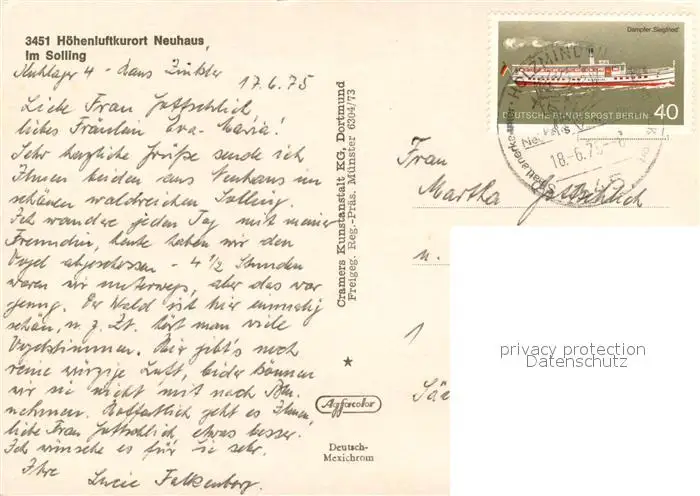 3451 Höhenluftkurort Neuhaus
im Solling
17.6.75
Liebe Frau Gottschlich
liebes Fräulein Eva-Maria!
Sehr herzliche Grüße sende ich
Ihnen beiden aus Neuhaus im
schönen waldreichen Solling.
Ich wandere jeden Tag mit meiner
Freundin, heute haben wir den
Vogel abgeschossen - 4 1/2 Stunden
waren wir unterwegs, aber das war
genug. Der Wald ist hier einmalig
schön, u. z. Zt. hört man viele
Vogelstimmen. Hier gibt's noch
reine würzige Luft, leider können
wir sie nicht mit nach Bln.
nehmen. Hoffentlich geht es Ihnen,
liebe Frau Gottschlich, etwas besser.
Ich wünsche es für Sie sehr.
Ihre
Lucie Falkenberg.
Cramers Kunstanstalt KG, Dortmund
Freigeg. Reg.-Präs. Münster 6304/73
Agfacolor
Deutsch-
Mexichrom
Dampfer „Siegfried“
DEUTSCHE BUNDESPOST BERLIN 40
HOLZMINDEN
18.-6.75
Frau
Martha Gottschlich
u.
1
privacy protection
Datenschutz